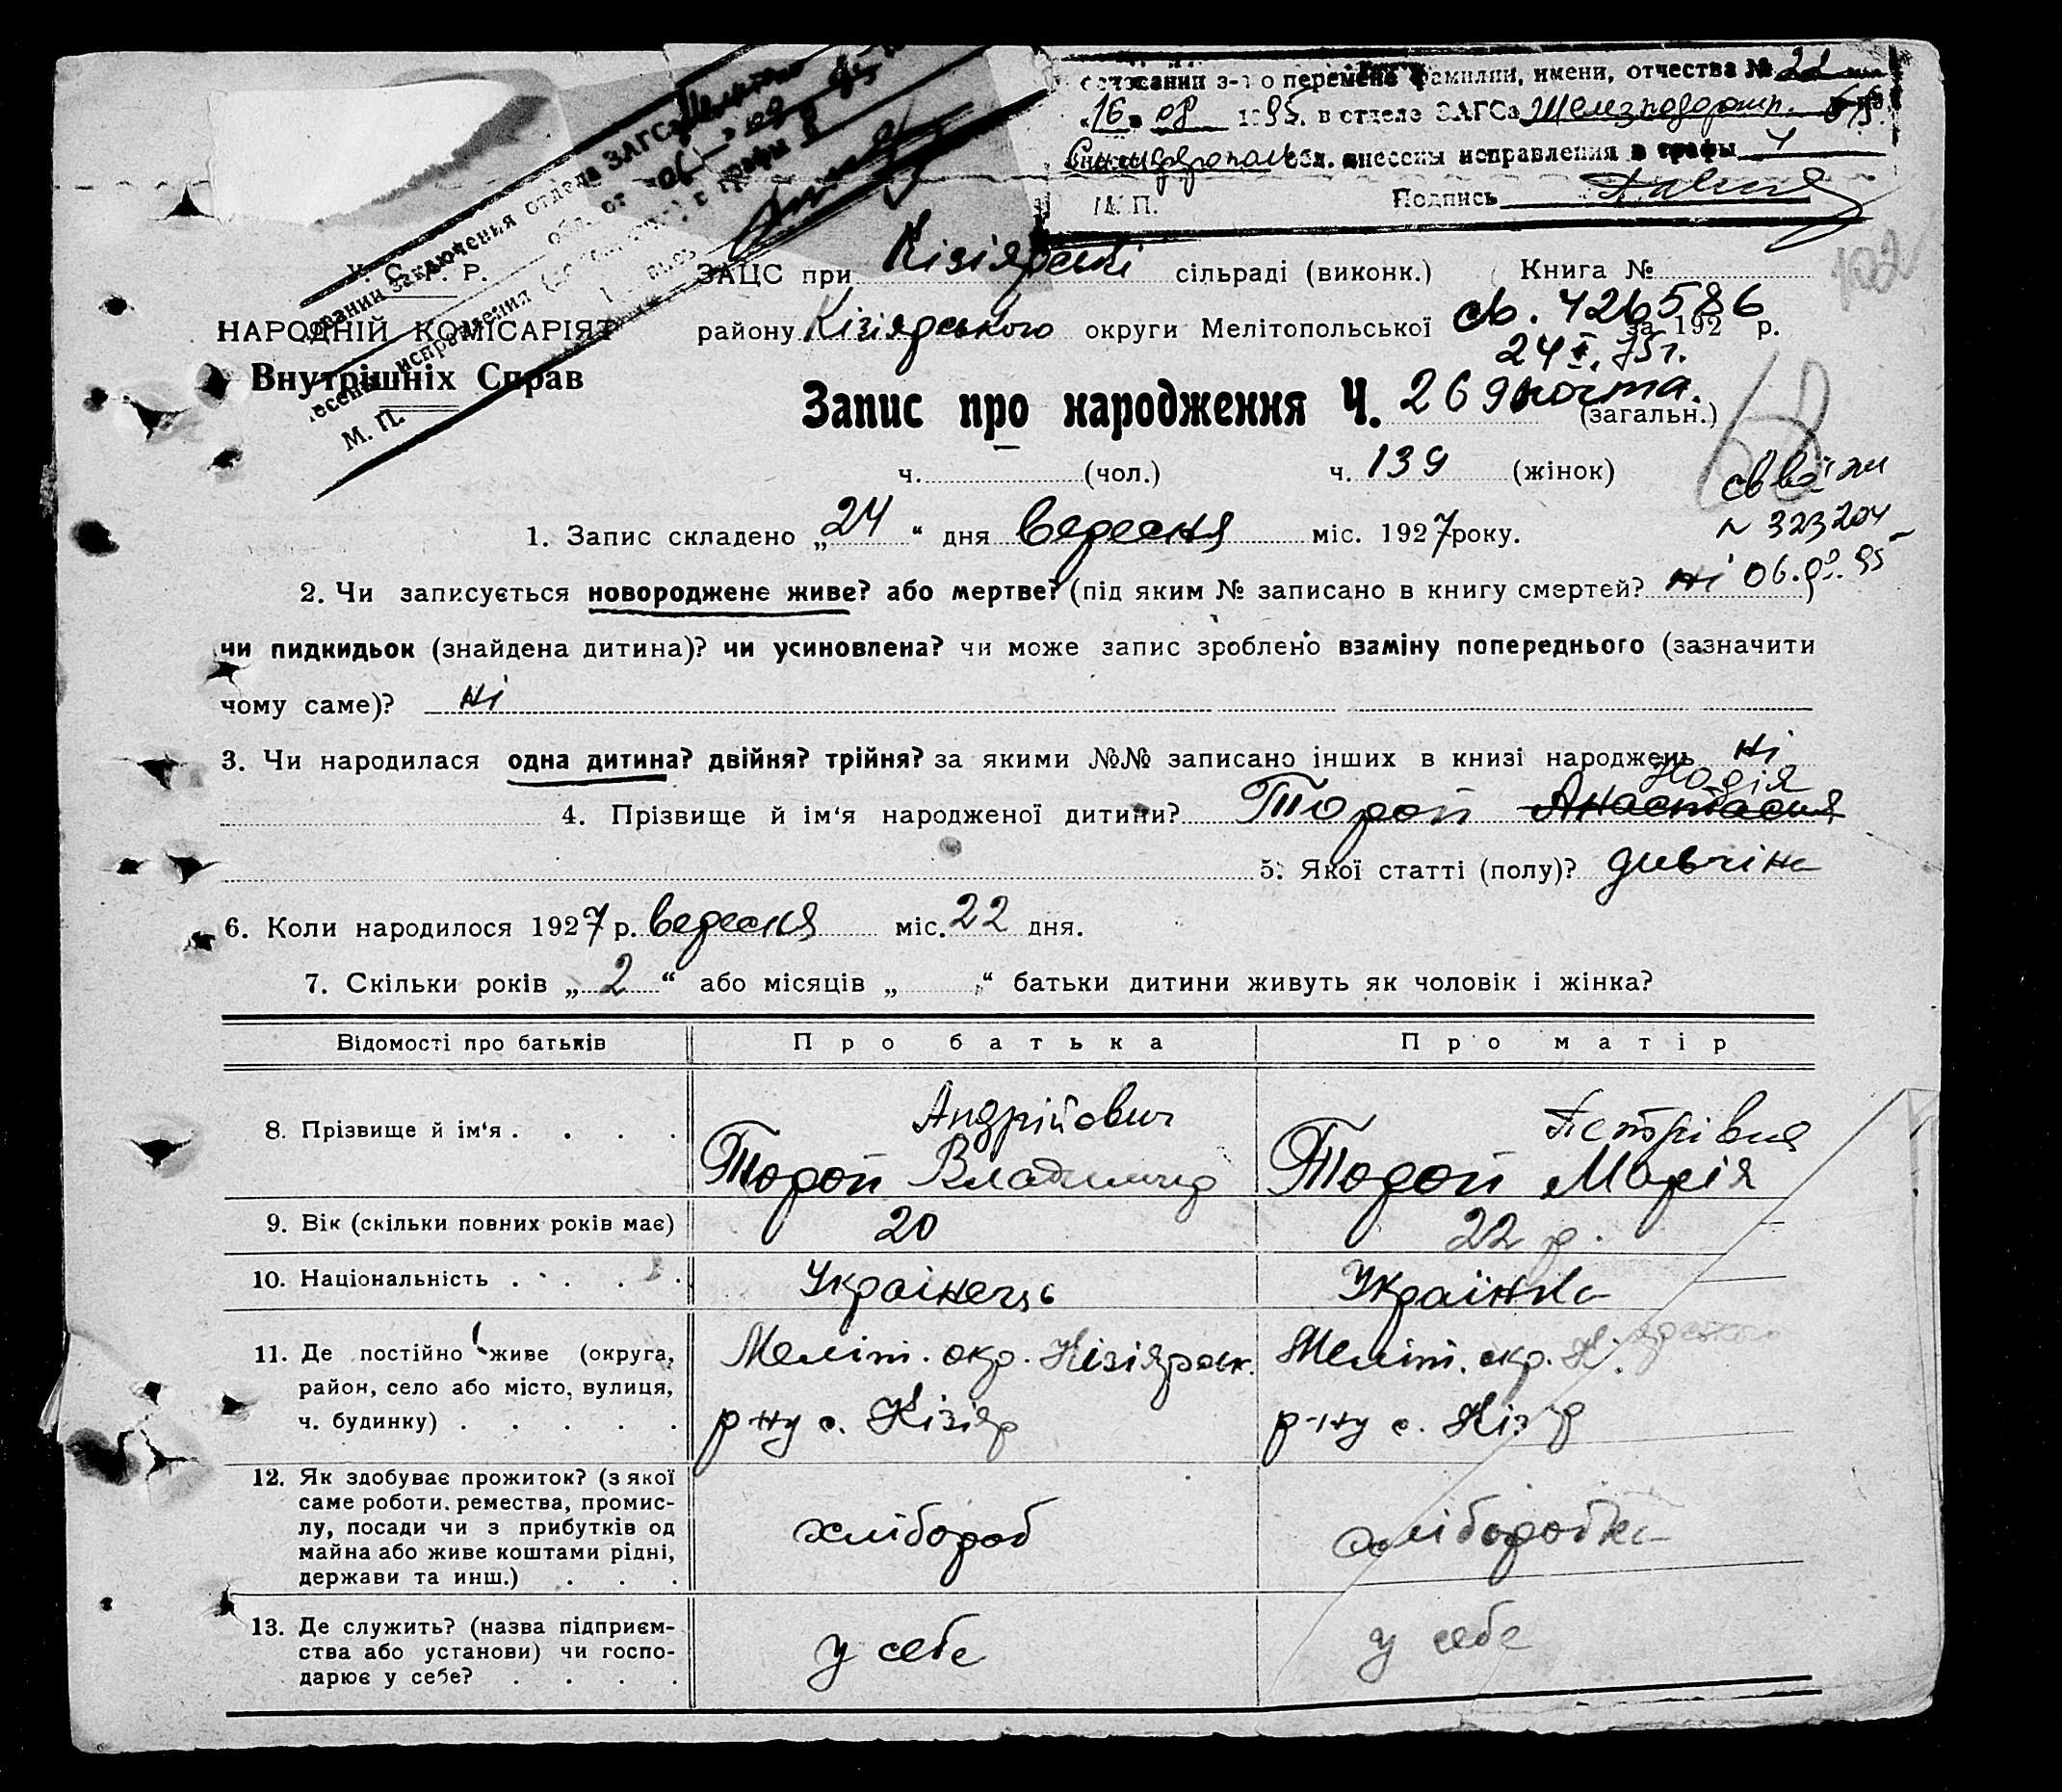 о перемене фамилии, имени, отчества № 22
"16" 08 1995. в отделе ЗАГСа Железнодорож.
внесены исправления в графы 4
М. П. Подпись
заключения отдела ЗАГСа
обл. от "06" 09 95
исправления в графы 8
М. П.
У. С. Р. Р.
НАРОДНІЙ КОМІСАРІЯТ
Внутрішніх Справ
ЗАЦС при Кізіярські сільраді (виконк.) Книга №
102
району Кізіярського округи Мелітопольської за 192 р.
св. 426586
24 X. 75 г.
почта.
Запис про народження Ч. 269 (загальн.)
68
ч. (чол.) ч. 139 (жінок)
№ 323204
06.09.95
1. Запис складено „24" дня вересня міс. 1927 року.
2. Чи записується новороджене живе? або мертве? (під яким № записано в книгу смертей? ні )
чи пидкидьок (знайдена дитина)? чи усиновлена? чи може запис зроблено взаміну попереднього (зазначити
чому саме)? ні
3. Чи народилася одна дитина? двійня? трійня? за якими №№ записано інших в книзі народжень ні
Надія
4. Прізвище й ім'я народженої дитини? Торой Анастасия
5. Якої статті (полу)? дивчіна
6. Коли народилося 1927 р. вересня міс. 22 дня.
7. Скільки років „2" або місяців „ " батьки дитини живуть як чоловік і жінка?
Відомості про батьків Про батька Про матір
Андрійович Петрівна
8. Прізвище й ім'я . . . . Торой Владимир Торой Марія
9. Вік (скільки повних років має) 20 22 р.
10. Національність . . . . Українець Українка
11. Де постійно живе (округа, Меліт. окр. Кізіярськ. Меліт. окр.
район, село або місто, вулиця,
ч. будинку) . . . . . р-ну с. Кізіяр р-ну с. Кізіяр
12. Як здобуває прожиток? (з якої
саме роботи, ремества, промис-
лу, посади чи з прибутків од хлібороб хліборобка
майна або живе коштами рідні,
держави та инш.) . . .
13. Де служить? (назва підприєм-
ства або установи) чи госпо- у себе у себе
дарює у себе? . . . .